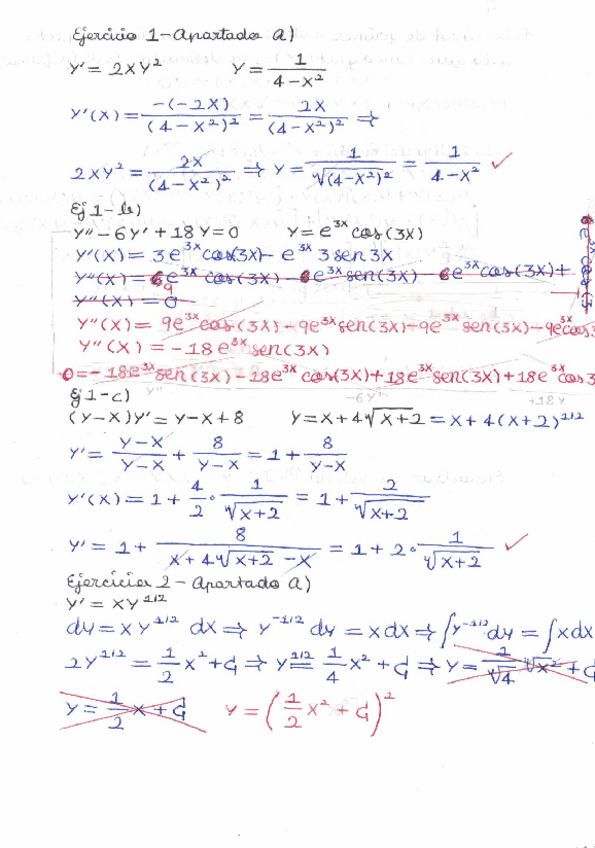 Ejercicio 1 - Apartado a)
y' = 2xy² y = 1/(4-x²)
y'(x) = -(-2x)/(4-x²)² = 2x/(4-x²)² ⇒
2xy² = 2x/(4-x²)² ⇒ y = 1/√(4-x²)² = 1/(4-x²) ✓
Ej 1-b)
y'' - 6y' + 18y = 0 y = e^3x cos(3x)
y'(x) = 3e^3x cos(3x) - e^3x 3 sen 3x
y''(x) = e^3x cos(3x) - e^3x sen(3x) - e^3x cos(3x) +
9
y''(x) = 0
y''(x) = 9e^3x cos(3x) - 9e^3x sen(3x) - 9e^3x sen(3x) - 9e^3x cos 3
y''(x) = -18e^3x sen(3x)
0 = -18e^3x sen(3x) - 18e^3x cos(3x) + 18e^3x sen(3x) + 18e^3x cos 3
y'' -6y' +18y
Ej 1-c)
(y-x)y' = y-x+8 y = x+4√(x+2) = x+4(x+2)^1/2
y' = (y-x)/(y-x) + 8/(y-x) = 1 + 8/(y-x)
y'(x) = 1 + 4/2 · 1/√(x+2) = 1 + 2/√(x+2)
y' = 1 + 8/(x+4√(x+2) - x) = 1 + 2 · 1/√(x+2) ✓
Ejercicio 2 - Apartado a)
y' = xy^1/2
dy = xy^1/2 dx ⇒ y^-1/2 dy = x dx ⇒ ∫y^-1/2 dy = ∫x dx
2y^1/2 = 1/2 x² + C ⇒ y^1/2 = 1/4 x² + C ⇒ y = 1/√4 √x² + C
y = 1/2 x + C y = (1/2 x² + C)²